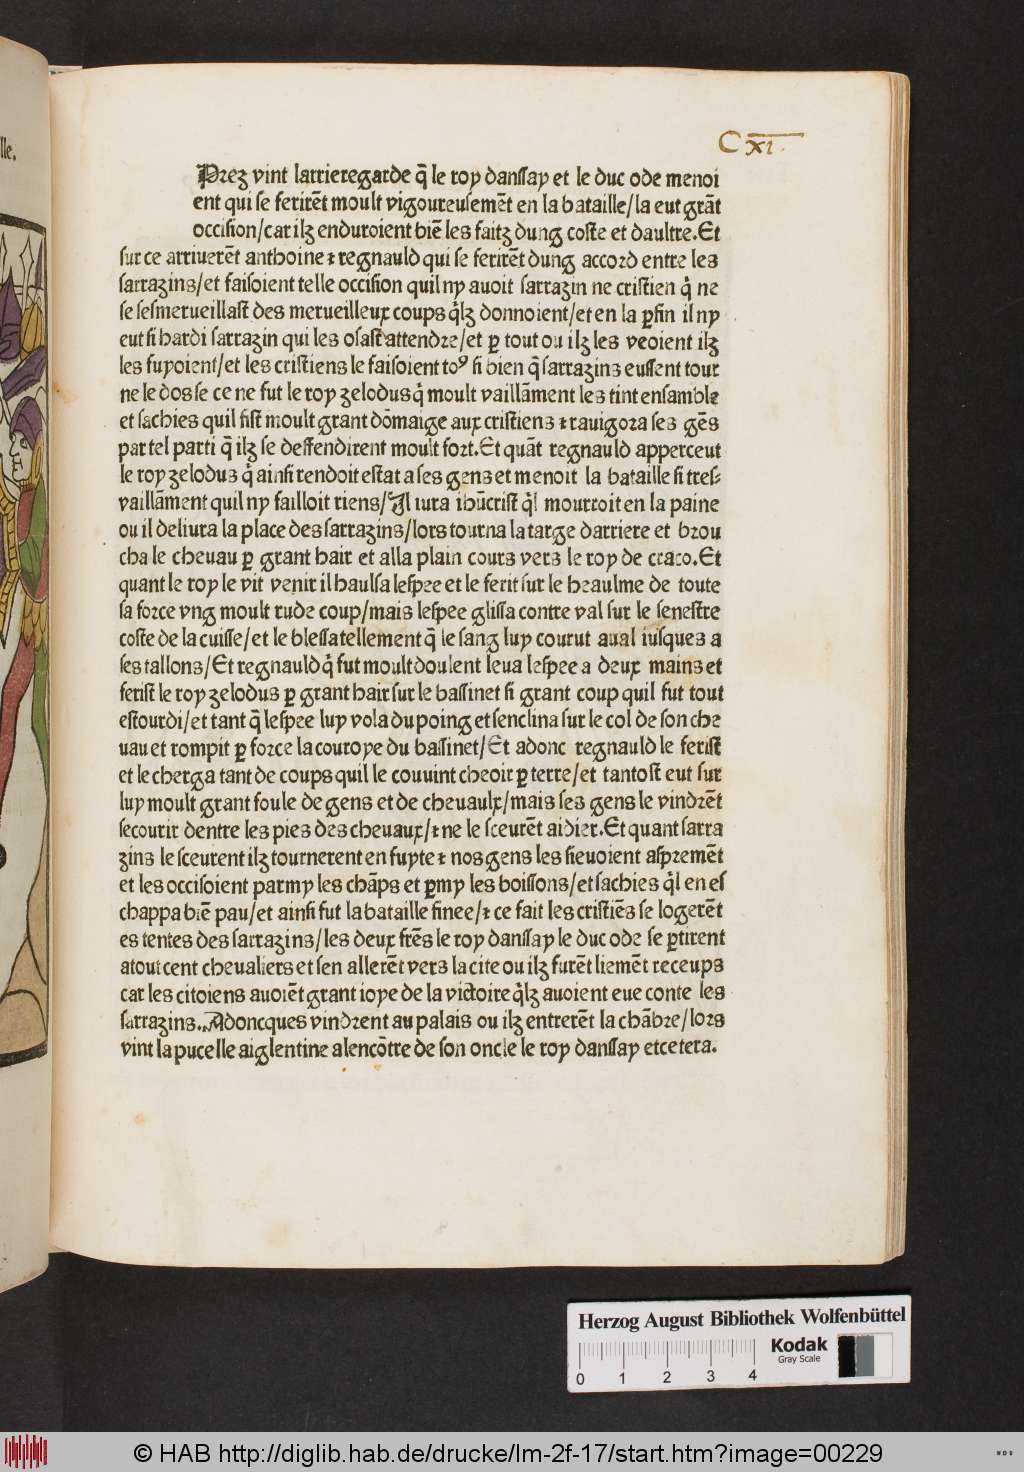 lle.
CXI.
Prez vint larrieregarde q̃ le roy danssay et le duc ode menoi
ent qui se ferirẽt moult vigoureusemẽt en la bataille/la eut grãt
occision/car ilz enduroient biẽ les faitz dung coste et daultre.Et
sur ce arriuerẽt anthoine ⁊ regnauld qui se ferirẽt dung accord entre les
sarrazins/et faisoient telle occision quil ny auoit sarrazin ne cristien q̃ ne
se sesmerueillast des merueilleux coups q̃lz donnoient/et en la ꝑfin il ny
eut si hardi sarrazin qui les osast attendre/et ꝑ tout ou ilz les veoient ilz
les fuyoient/et les cristiens le faisoient toꝰ si bien q̃ sarrazins eussent tour
ne le dos se ce ne fut le roy zelodus q̃ moult vaillãment les tint ensamble
et sachies quil fist moult grant dõmaige aux cristiens ⁊ rauigora ses gẽs
par tel parti q̃ ilz se deffendirent moult fort.Et quãt regnauld apperceut
le roy zelodus q̃ ainsi rendoit estat a ses gens et menoit la bataille si tres-
vaillãment quil ny failloit riens/Il iura ihũcrist q̃l mourroit en la paine
ou il deliura la place des sarrazins/lors tourna la targe darriere et brou
cha le cheuau ꝑ grant hair et alla plain cours vers le roy de craco.Et
quant le roy le vit venir il haulsa lespee et le ferit sur le heaulme de toute
sa force vng moult rude coup/mais lespee glissa contre val sur le senestre
coste de la cuisse/et le blessa tellement q̃ le sang luy courut aual iusques a
ses tallons/Et regnauld q̃ fut moult doulent leua lespee a deux mains et
ferist le roy zelodus ꝑ grant hair sur le bassinet si grant coup quil fut tout
estourdi/et tant q̃ lespee luy vola du poing et senclina sur le col de son che
uau et rompit ꝑ force la couroye du bassinet/Et adonc regnauld le ferist
et le cherga tant de coups quil le couuint cheoir ꝑ terre/et tantost eut sur
luy moult grant foule de gens et de cheuaulx/mais ses gens le vindrẽt
secourir dentre les pies des cheuaux/⁊ ne le sceurẽt aidier.Et quant sarra
zins le sceurent ilz tournerent en fuyte ⁊ nos gens les sieuoient aspremẽt
et les occisoient parmy les chãps et ꝑmy les boissons/et sachies q̃l en es
chappa biẽ pau/et ainsi fut la bataille finee/⁊ ce fait les cristiẽs se logerẽt
es tentes des sarrazins/les deux frẽs le roy danssay le duc ode se ꝑtirent
atout cent cheualiers et sen allerẽt vers la cite ou ilz furẽt liemẽt receups
car les citoiens auoiẽt grant ioye de la victoire q̃lz auoient eue conte les
sarrazins.Adoncques vindrent au palais ou ilz entrerẽt la chãbre/lors
vint la pucelle aiglentine alencõtre de son oncle le roy danssay etcetera.
Herzog August Bibliothek Wolfenbüttel
Kodak
Gray Scale
0 1 2 3 4
© HAB http://diglib.hab.de/drucke/lm-2f-17/start.htm?image=00229